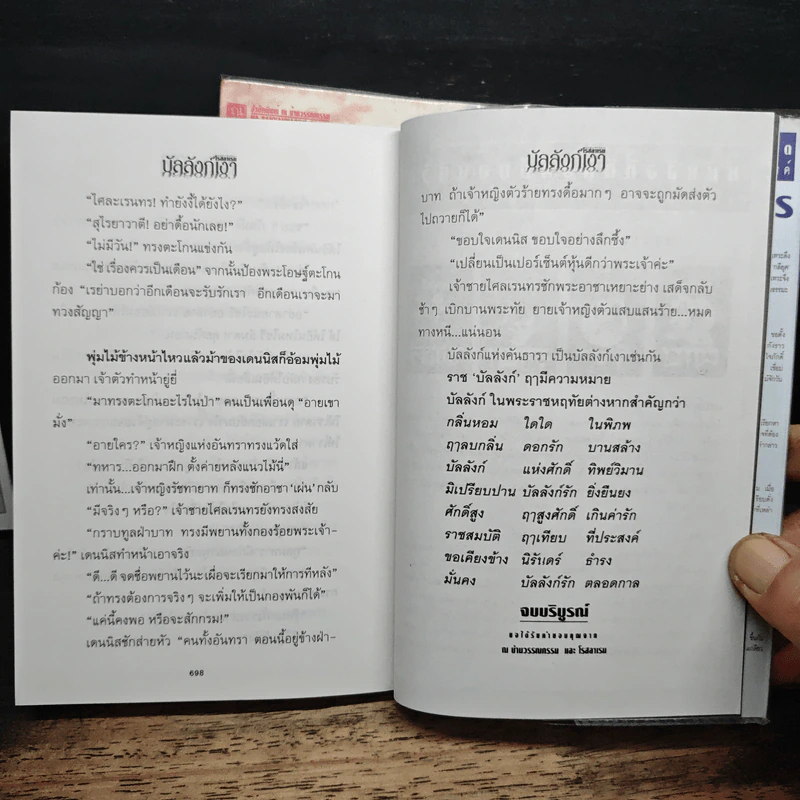 บัลลังก์เงา
"ไศละเรนทร! ทำยังงี้ได้ยังไง?"
"สุไรยาวาตี! อย่าดื้อนักเลย!"
"ไม่มีวัน!" ทรงตะโกนแข่งกัน
"ใช่ เรื่องควรเป็นเดือน" จากนั้นป้องพระโอษฐ์ตะโกน
ก้อง "เรย่าบอกว่าอีกเดือนจะรับรักเรา อีกเดือนเราจะมา
ทวงสัญญา"
พุ่มไม้ข้างหน้าไหวแล้วม้าของเดนนิสก็อ้อมพุ่มไม้
ออกมา เจ้าตัวทำหน้ายู่ยี่
"มาทรงตะโกนอะไรในป่า" คนเป็นเพื่อนดุ "อายเขา
มั่ง"
"อายใคร?" เจ้าหญิงแห่งอันทราทรงแว้ดใส่
"ทหาร...ออกมาฝึก ตั้งค่ายหลังแนวไม้นี่"
เท่านั้น...เจ้าหญิงรัชทายาท ก็ทรงชักอาชา 'เผ่น' กลับ
"มีจริงๆ หรือ?" เจ้าชายไศลเรนทรยังทรงสงสัย
"กราบทูลฝ่าบาท ทรงมีพยานทั้งกองร้อยพระเจ้า-
ค่ะ!" เดนนิสทำหน้าเอาจริง
"ดี...ดี จดชื่อพยานไว้นะเผื่อจะเรียกมาให้การทีหลัง"
"ถ้าทรงต้องการจริงๆ จะเพิ่มให้เป็นกองพันก็ได้"
"แค่นี้คงพอ หรือจะสักกรม!"
เดนนิสชักส่ายหัว "คนทั้งอันทรา ตอนนี้อยู่ข้างฝ่า-
698
โรสลาเรน
บัลลังก์เงา
บาท ถ้าเจ้าหญิงตัวร้ายทรงดื้อมากๆ อาจจะถูกมัดส่งตัว
ไปถวายก็ได้"
"ขอบใจเดนนิส ขอบใจอย่างลึกซึ้ง"
"เปลี่ยนเป็นเปอร์เซ็นต์หุ้นดีกว่าพระเจ้าค่ะ"
เจ้าชายไศลเรนทรชักพระอาชาเหยาะย่าง เสด็จกลับ
ช้าๆ เบิกบานพระทัย ยายเจ้าหญิงตัวแสบแสนร้าย...หมด
ทางหนี...แน่นอน
บัลลังก์แห่งคันธารา เป็นบัลลังก์เงาเช่นกัน
ราช 'บัลลังก์' ฤๅมีความหมาย
บัลลังก์ ในพระราชหฤทัยต่างหากสำคัญกว่า
กลิ่นหอม ใดใด ในพิภพ
ฤๅลบกลิ่น ดอกรัก บานสล้าง
บัลลังก์ แห่งศักดิ์ ทิพย์วิมาน
มิเปรียบปาน บัลลังก์รัก ยิ่งยืนยง
ศักดิ์สูง ฤๅสูงศักดิ์ เกินค่ารัก
ราชสมบัติ ฤๅเทียบ ที่ประสงค์
ขอเคียงข้าง นิรันดร์ ธำรง
มั่นคง บัลลังก์รัก ตลอดกาล
จบบริบูรณ์
ขอได้รับคำขอบคุณจาก
ณ บ้านวรรณกรรม และ โรสลาเรน